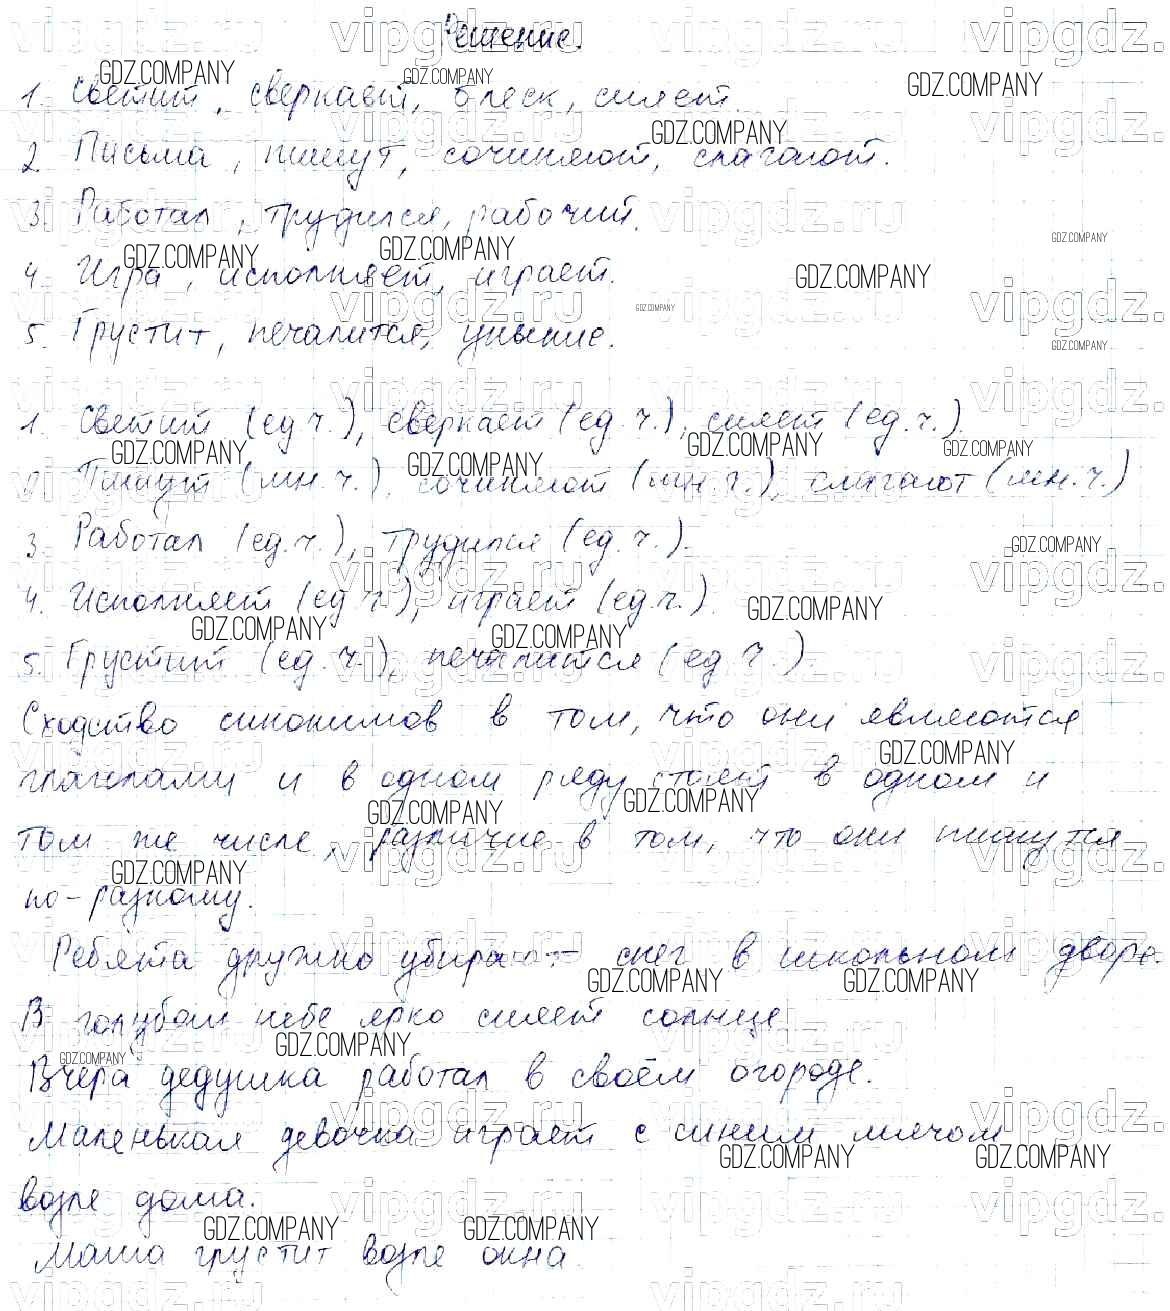 Решение.
1. Светит, сверкает, блеск, сияет.
2. Письма, пишут, сочиняют, слагают.
3. Работал, трудился, рабочий.
4. Игра, исполняет, играет.
5. Грустит, печалится, уныние.
1. Светит (ед.ч.), сверкает (ед.ч.), сияет (ед.ч.).
2. Пишут (мн.ч.), сочиняют (мн.ч.), слагают (мн.ч.)
3. Работал (ед.ч.), трудился (ед.ч.).
4. Исполняет (ед.ч.), играет (ед.ч.)
5. Грустит (ед.ч.), печалится (ед.ч.)
Сходство синонимов в том, что они являются
глаголами и в одном ряду стоят в одном и
том же числе, различие в том, что они пишутся
по-разному.
Ребята дружно убирают снег в школьном дворе.
В голубом небе ярко сияет солнце
Вчера дедушка работал в своём огороде.
Маленькая девочка играет с синим мячом
возле дома.
Маша грустит возле окна